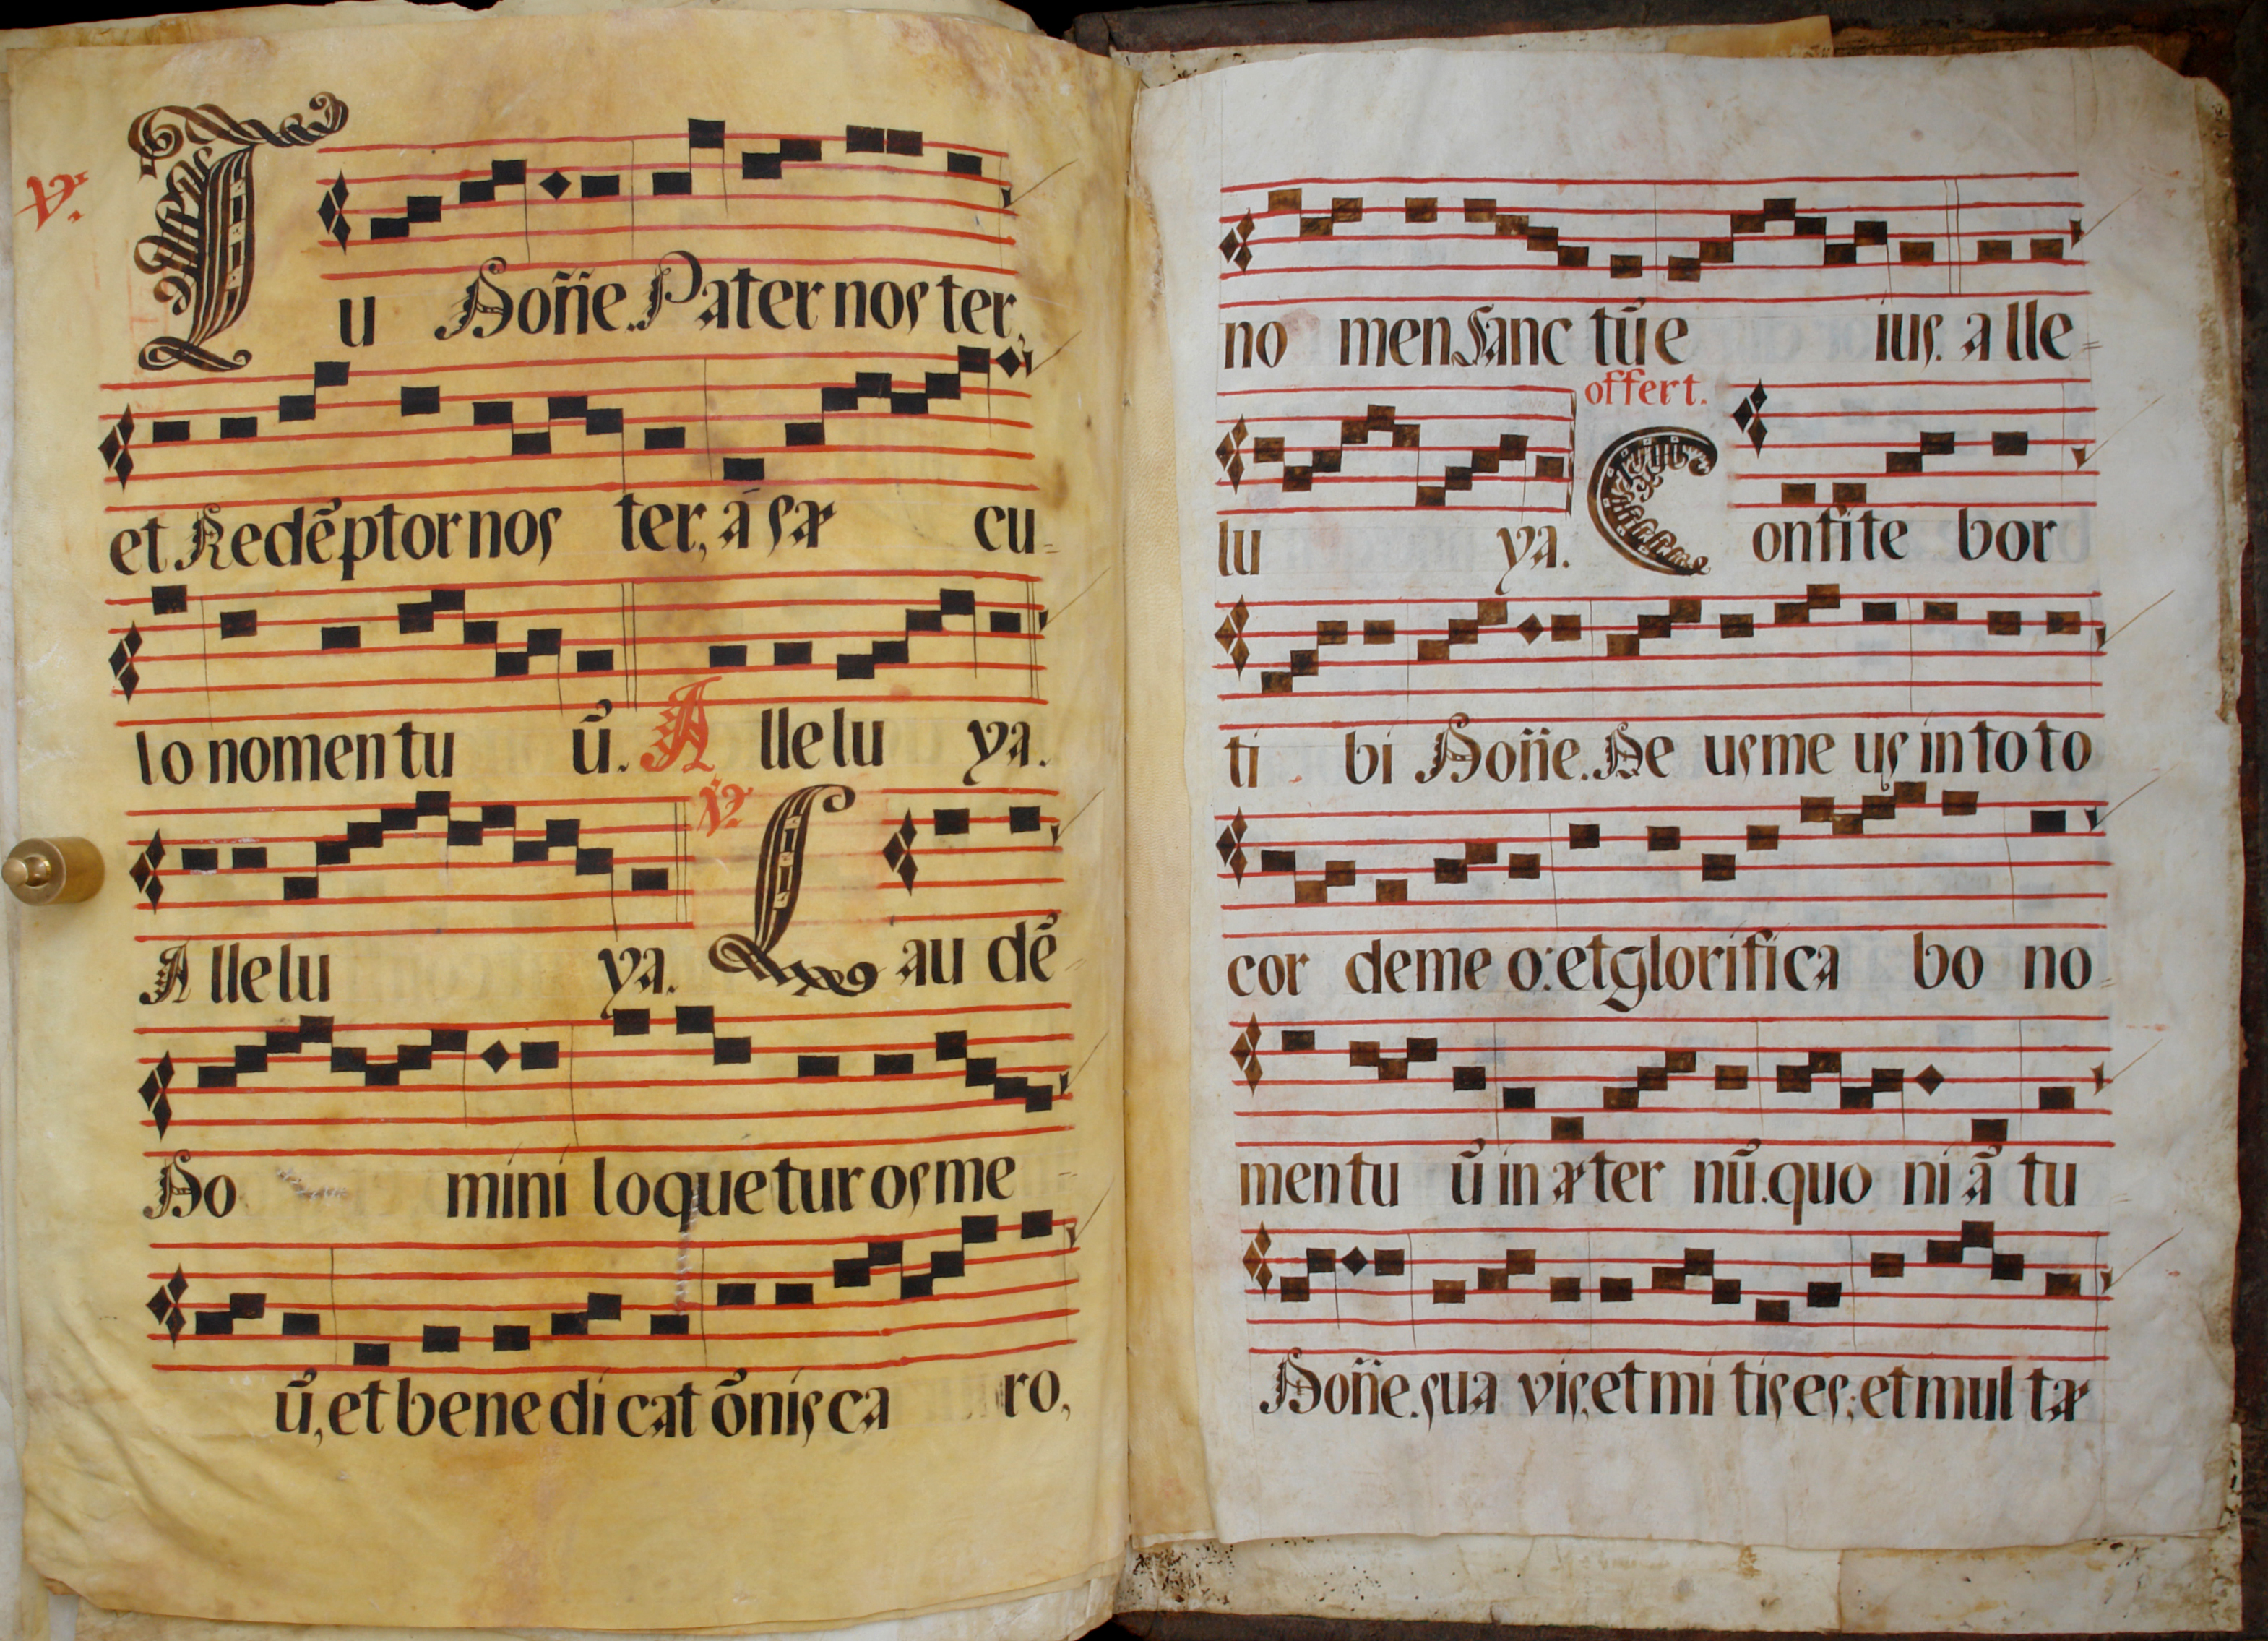 ℣. Tu Dom̃e. Pater noster,
et Redẽptor noster, á sæcu-
lo nomen tuũ. Alleluya.
Alleluya. ℣. Laudẽ-
Domini loquetur os me-
ũ, et benedicat õnis caro,
nomen Sanctũ eius. alle-
luya. offert. Confitebor
tibi Dom̃e. Deus meus in toto
cor de meo: et glorificabo no-
men tuũ in æternũ. quoniã tu
Dom̃e. suavis, et mitis es: et multæ